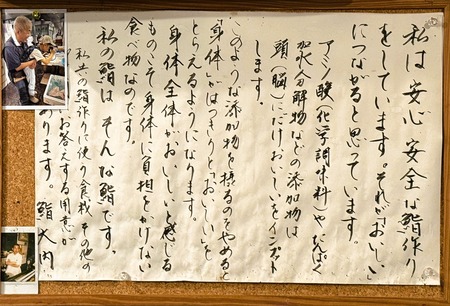 私は安心安全な鮨作り
をしています。それが「おいしい」
につながると思っています。
アミノ酸(化学調味料)やたんぱく
加水分解物などの添加物は
頭(脳)にだけおいしいをインプット
します。
このような添加物を摂るのをやめると
「身体」がはっきりと「おいしい」を
とらえるようになります。
身体全体がおいしいと感じる
ものこそ身体に負担をかけない
食べ物なのです。
私の鮨はそんな鮨です。
私共の鮨作りに使う食材その他の
お答えする用意が
あります。 鮨 大内